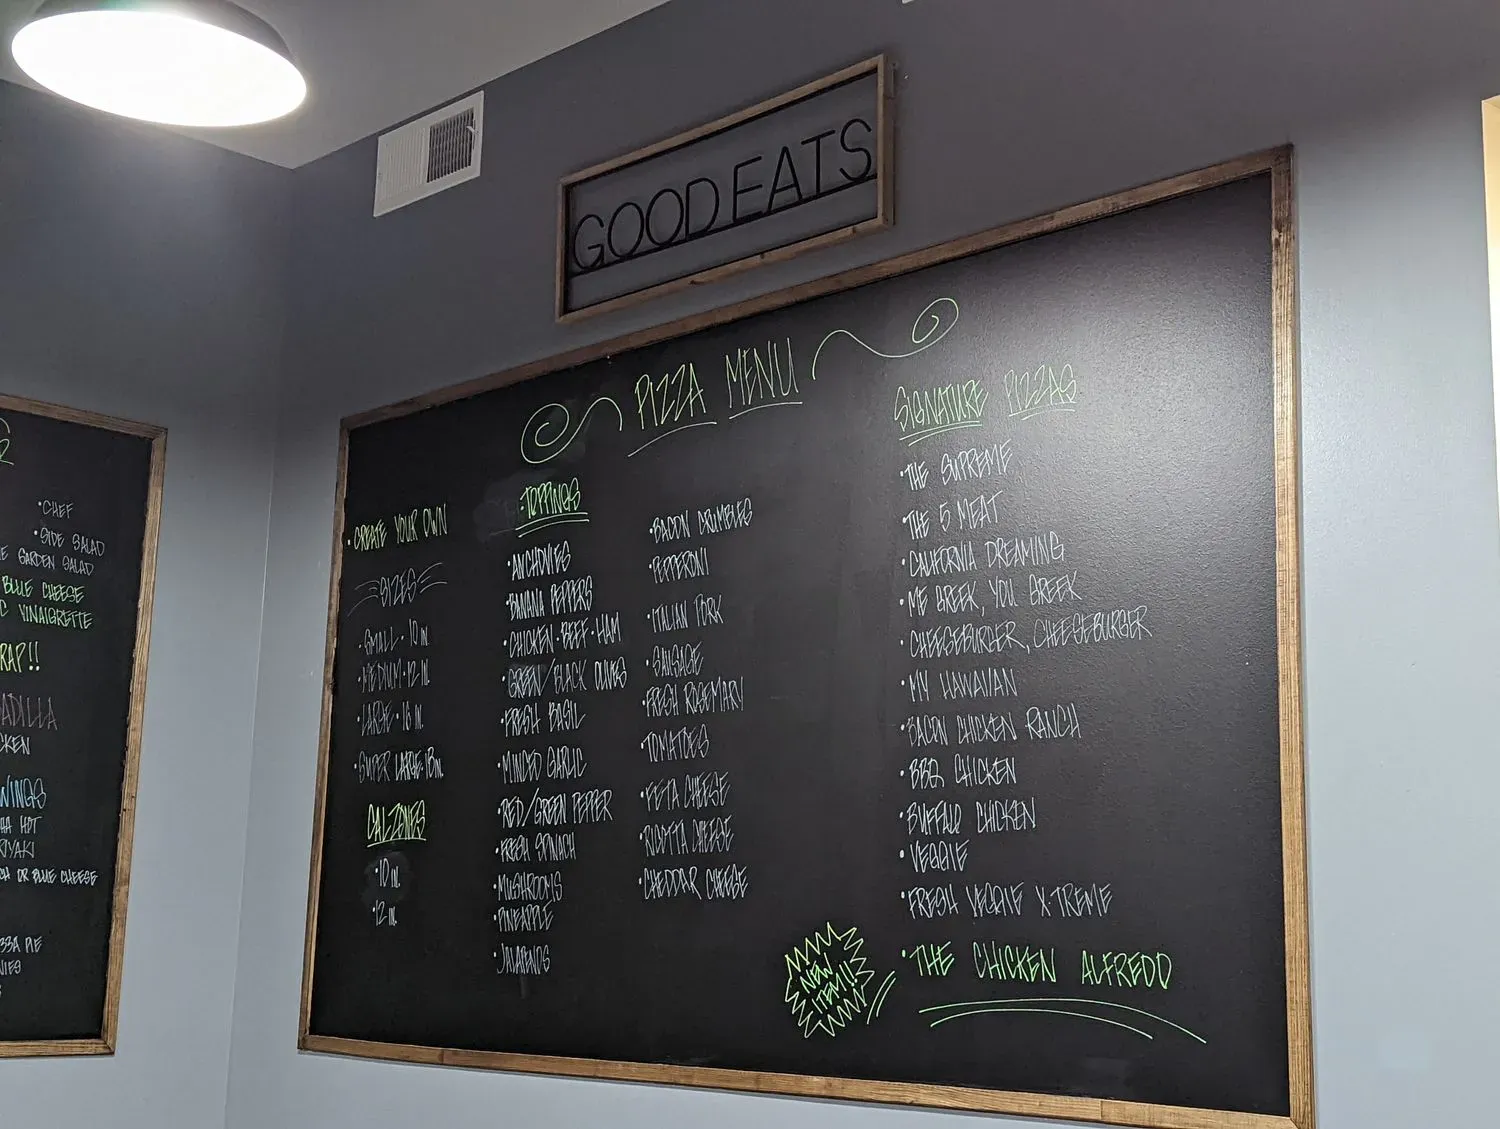 GOOD EATS
PIZZA MENU
• CREATE YOUR OWN
SIZES
• SMALL • 10 IN.
• MEDIUM • 12 IN.
• LARGE • 16 IN.
• SUPER LARGE • 18 IN.
CALZONES
• 10 IN.
• 12 IN.
• TOPPINGS
• ANCHOVIES
• BANANA PEPPERS
• CHICKEN • BEEF • HAM
• GREEN/BLACK OLIVES
• FRESH BASIL
• MINCED GARLIC
• RED/GREEN PEPPER
• FRESH SPINACH
• MUSHROOMS
• PINEAPPLE
• JALAPENOS
• BACON CRUMBLES
• PEPPERONI
• ITALIAN PORK
• SAUSAGE
• FRESH ROSEMARY
• TOMATOES
• FETA CHEESE
• RICOTTA CHEESE
• CHEDDAR CHEESE
SIGNATURE PIZZAS
• THE SUPREME
• THE 5 MEAT
• CALIFORNIA DREAMING
• ME GREEK, YOU GREEK
• CHEESEBURGER, CHEESEBURGER
• MY HAWAIIAN
• BACON CHICKEN RANCH
• BBQ CHICKEN
• BUFFALO CHICKEN
• VEGGIE
• FRESH VEGGIE X-TREME
NEW
ITEM!!
• THE CHICKEN ALFREDO
• CHEF
• SIDE SALAD
GARDEN SALAD
BLUE CHEESE
VINAIGRETTE
RAP!!
ADILLA
CKEN
WINGS
HOT
RIYAKI
OR BLUE CHEESE
PIE